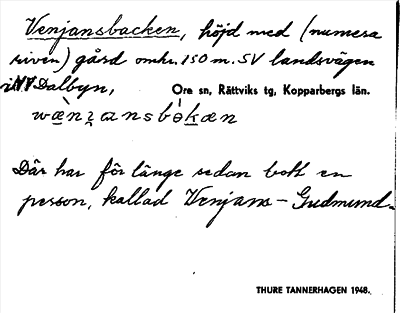 Venjansbacken, höjd med (numera
riven) gård omkr. 150 m. SV landsvägen
i NV Dalbyn, Ore sn, Rättviks tg, Kopparbergs län.
Där har för länge sedan bott en
person, kallad Venjans-Gudmund.
THURE TANNERHAGEN 1948.